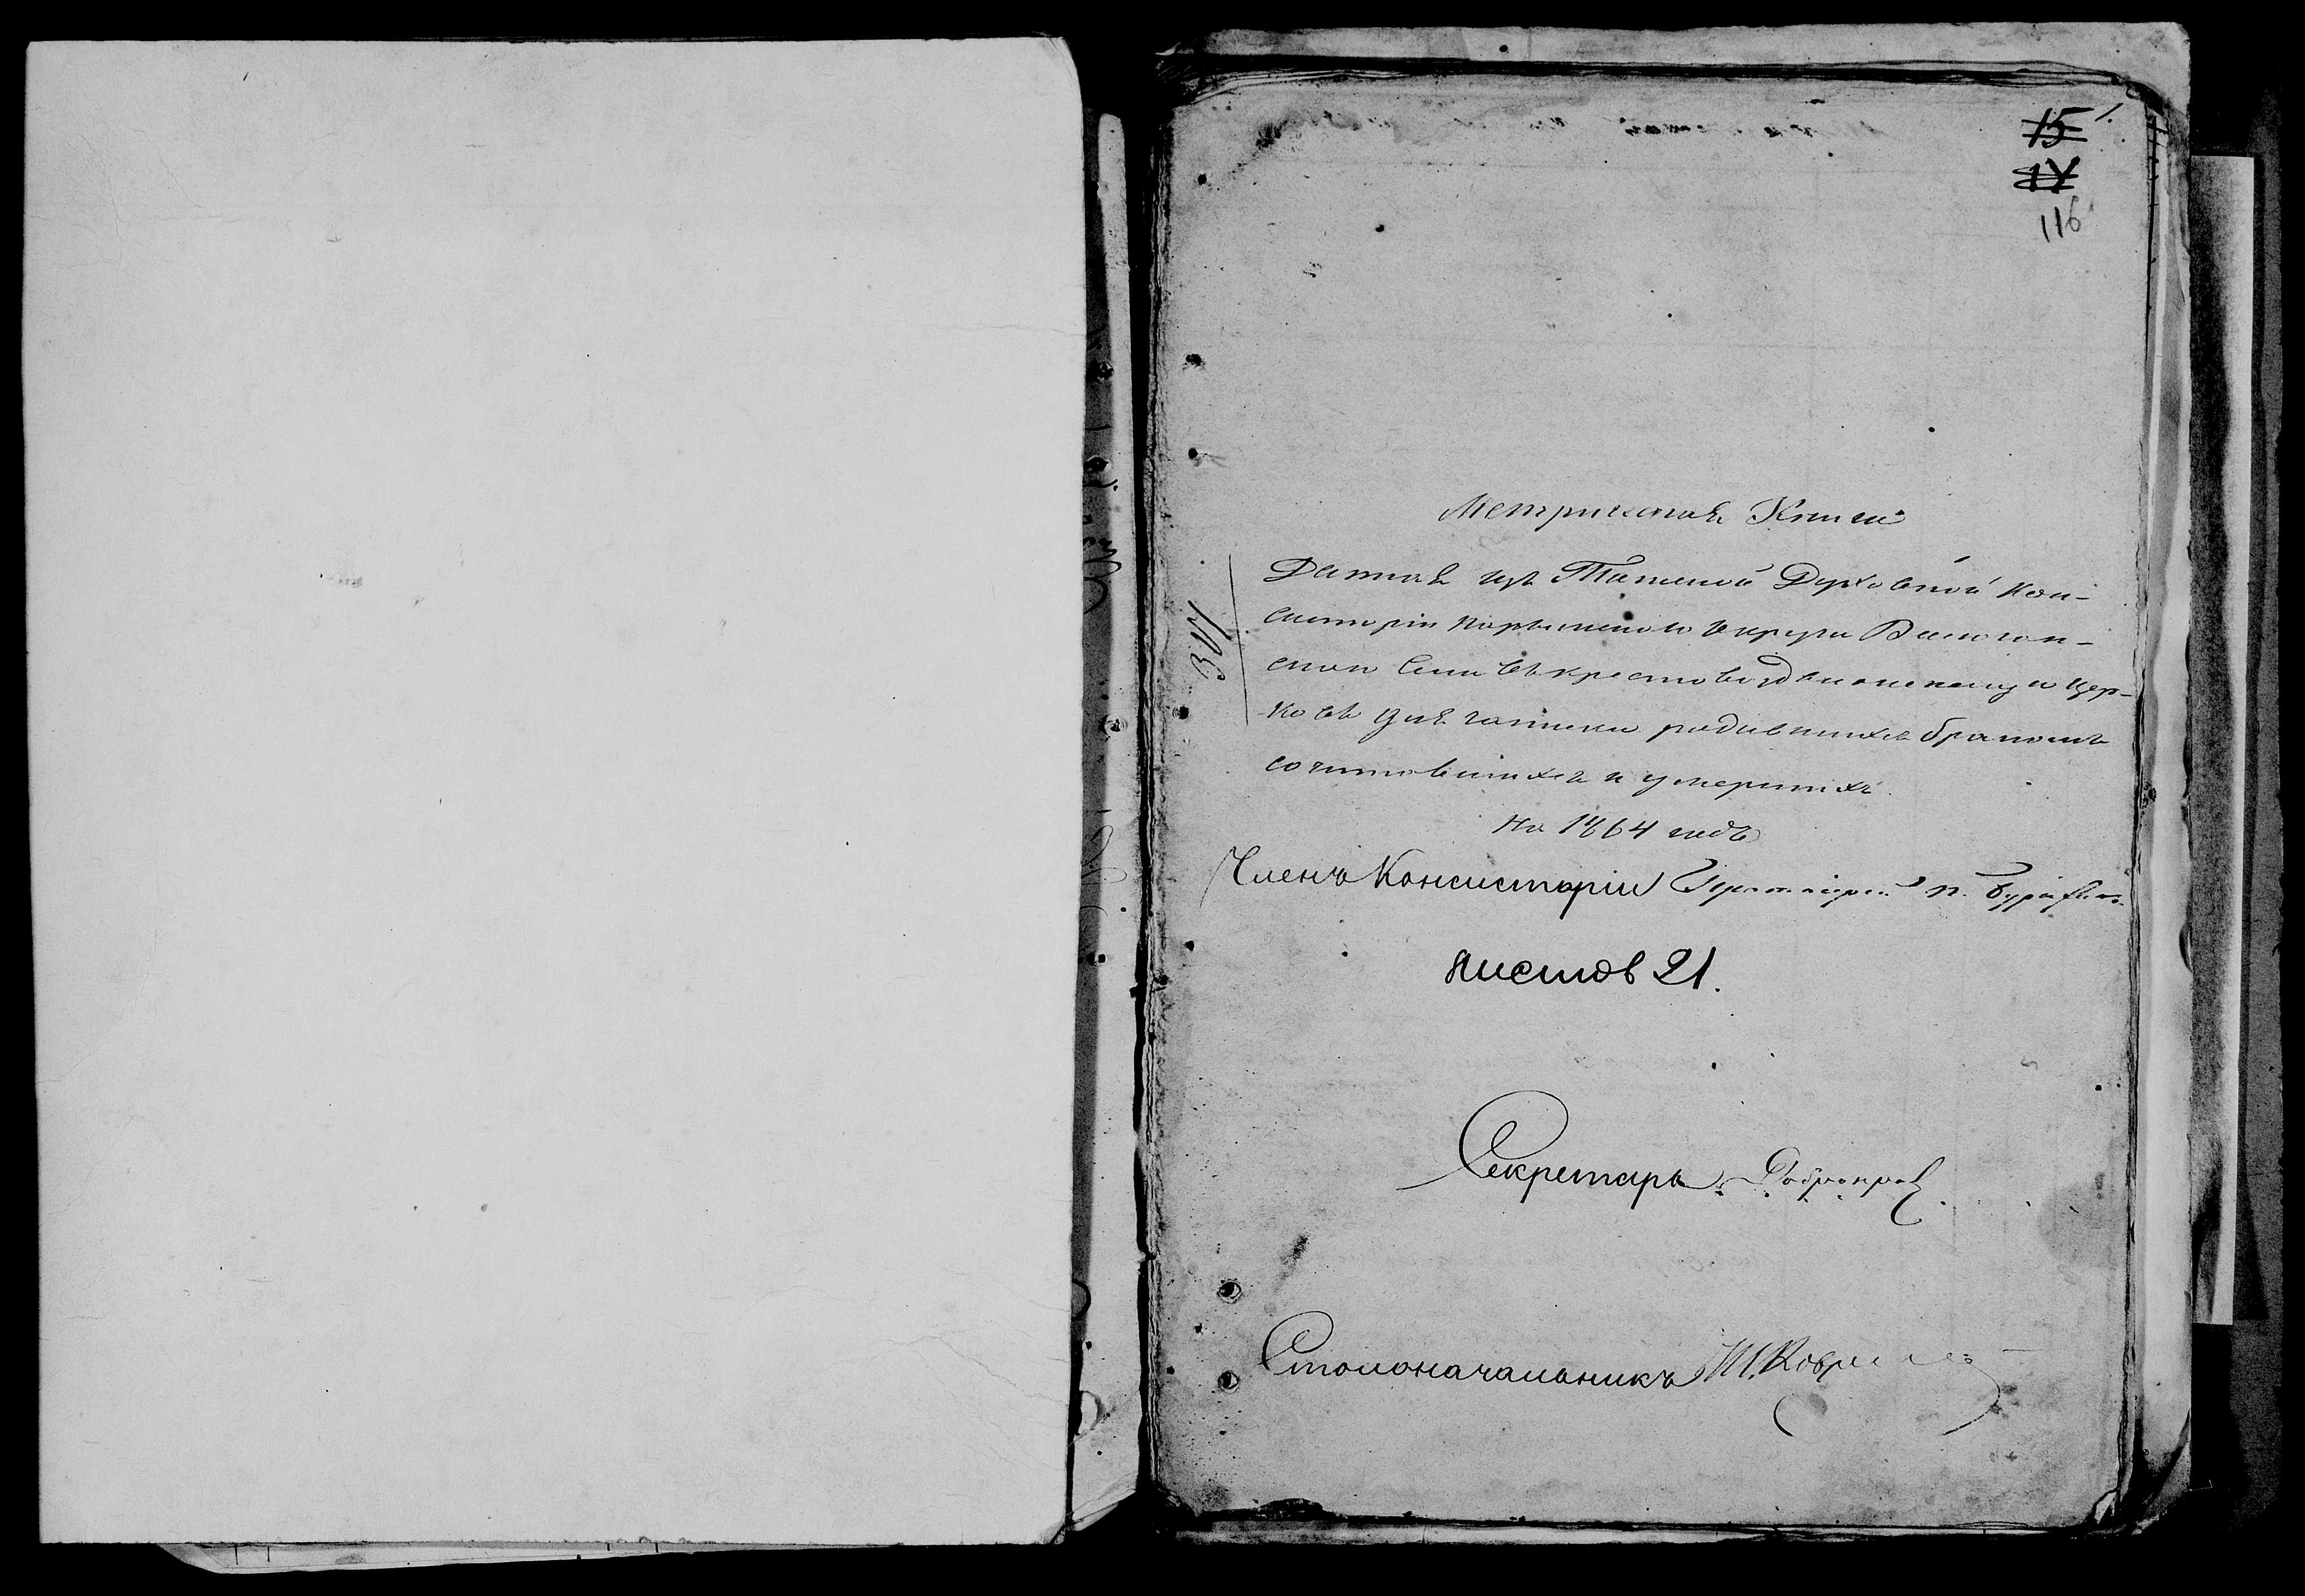 15 1.
116
Метрическая Книга
Данная изъ Томской Духовной Кон-
систоріи Нарымскаго Округа Васюган-
скаго Села въ крестовоздвиженскую цер-
ковь для записки родившихся бракомъ
сочитавшихся и умершихъ
На 1864 годъ
Членъ Консисторіи
листов 21.
Секретарь
Столоначальникъ